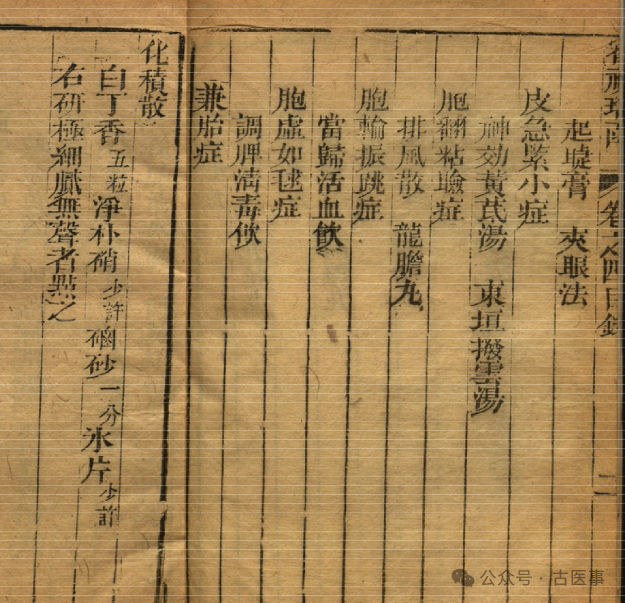 審視瑤函 卷之四目錄 二
起睫膏 夾眼法
皮急緊小症
神効黃芪湯 東垣撥雲湯
胞翻粘瞼症
排風散 龍膽丸
胞輪振跳症
當歸活血飲
胞虛如毬症
調脾清毒飲
兼胎症
化積散
白丁香五粒淨朴硝少許硇砂一分氷片少許
右研極細膩無聲者點之
公众号·古医事